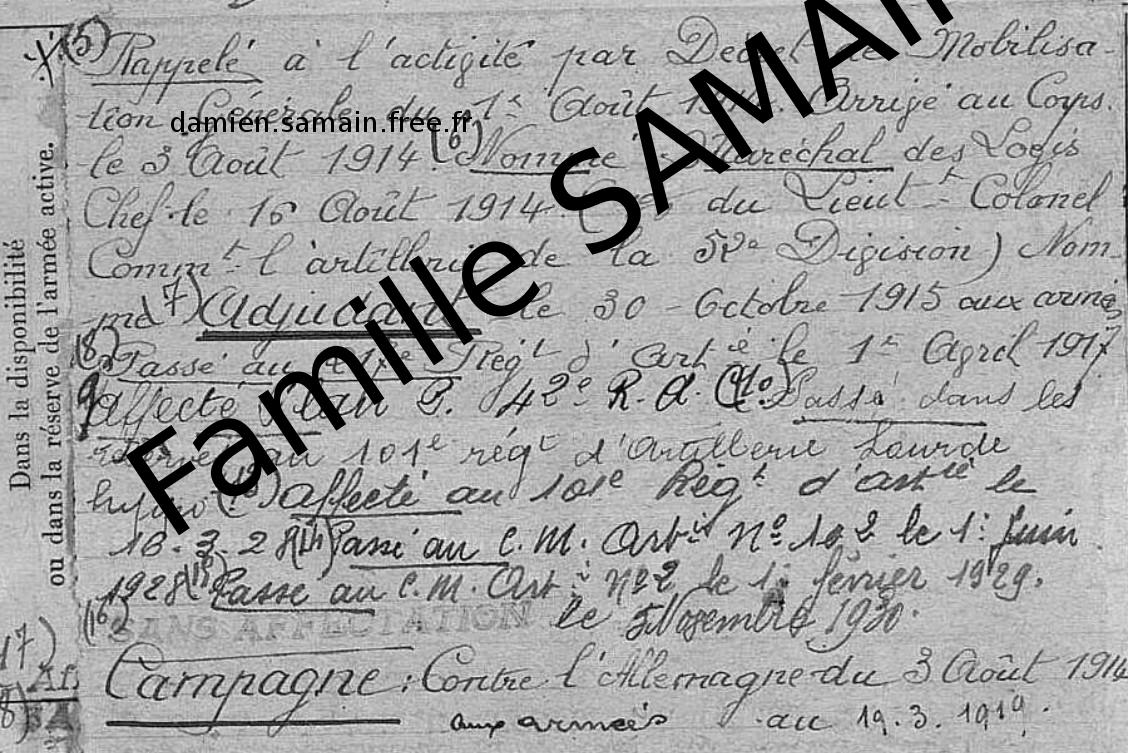 (5) Rappelé à l'activité par Décret de Mobilisa-
tion Générale du 1er Août 1914. Arrivé au Corps
le 3 Août 1914 (6) Nommé Maréchal des Logis
Chef le 16 Août 1914 du Lieut-t Colonel
Commt l'artillerie de la 52e Division) Nom
mé 7) Adjudant le 30 Octobre 1915 aux armées
(8) Passé au Régt d'Artie le 1er Avril 1917
9) affecté Plan 42e R.A.C. 10) Passé dans les
au 101e régt d'Artillerie Lourde
affecté au 101e Régt d'artie le
16.3.28 Passé au C.M. Artie No 102 le 1er Juin
1928 (15) Passé au C.M. Art No 2 le 1er février 1929.
(16) SANS AFFECTATION le 5 Novembre 1930.
17)
Campagne : Contre l'Allemagne du 3 Août 1914
8)
aux armées au 19.3.1919.
Dans la disponibilité
ou dans la réserve de l'armée active.
damien.samain.free.fr
Famille SAMAIN